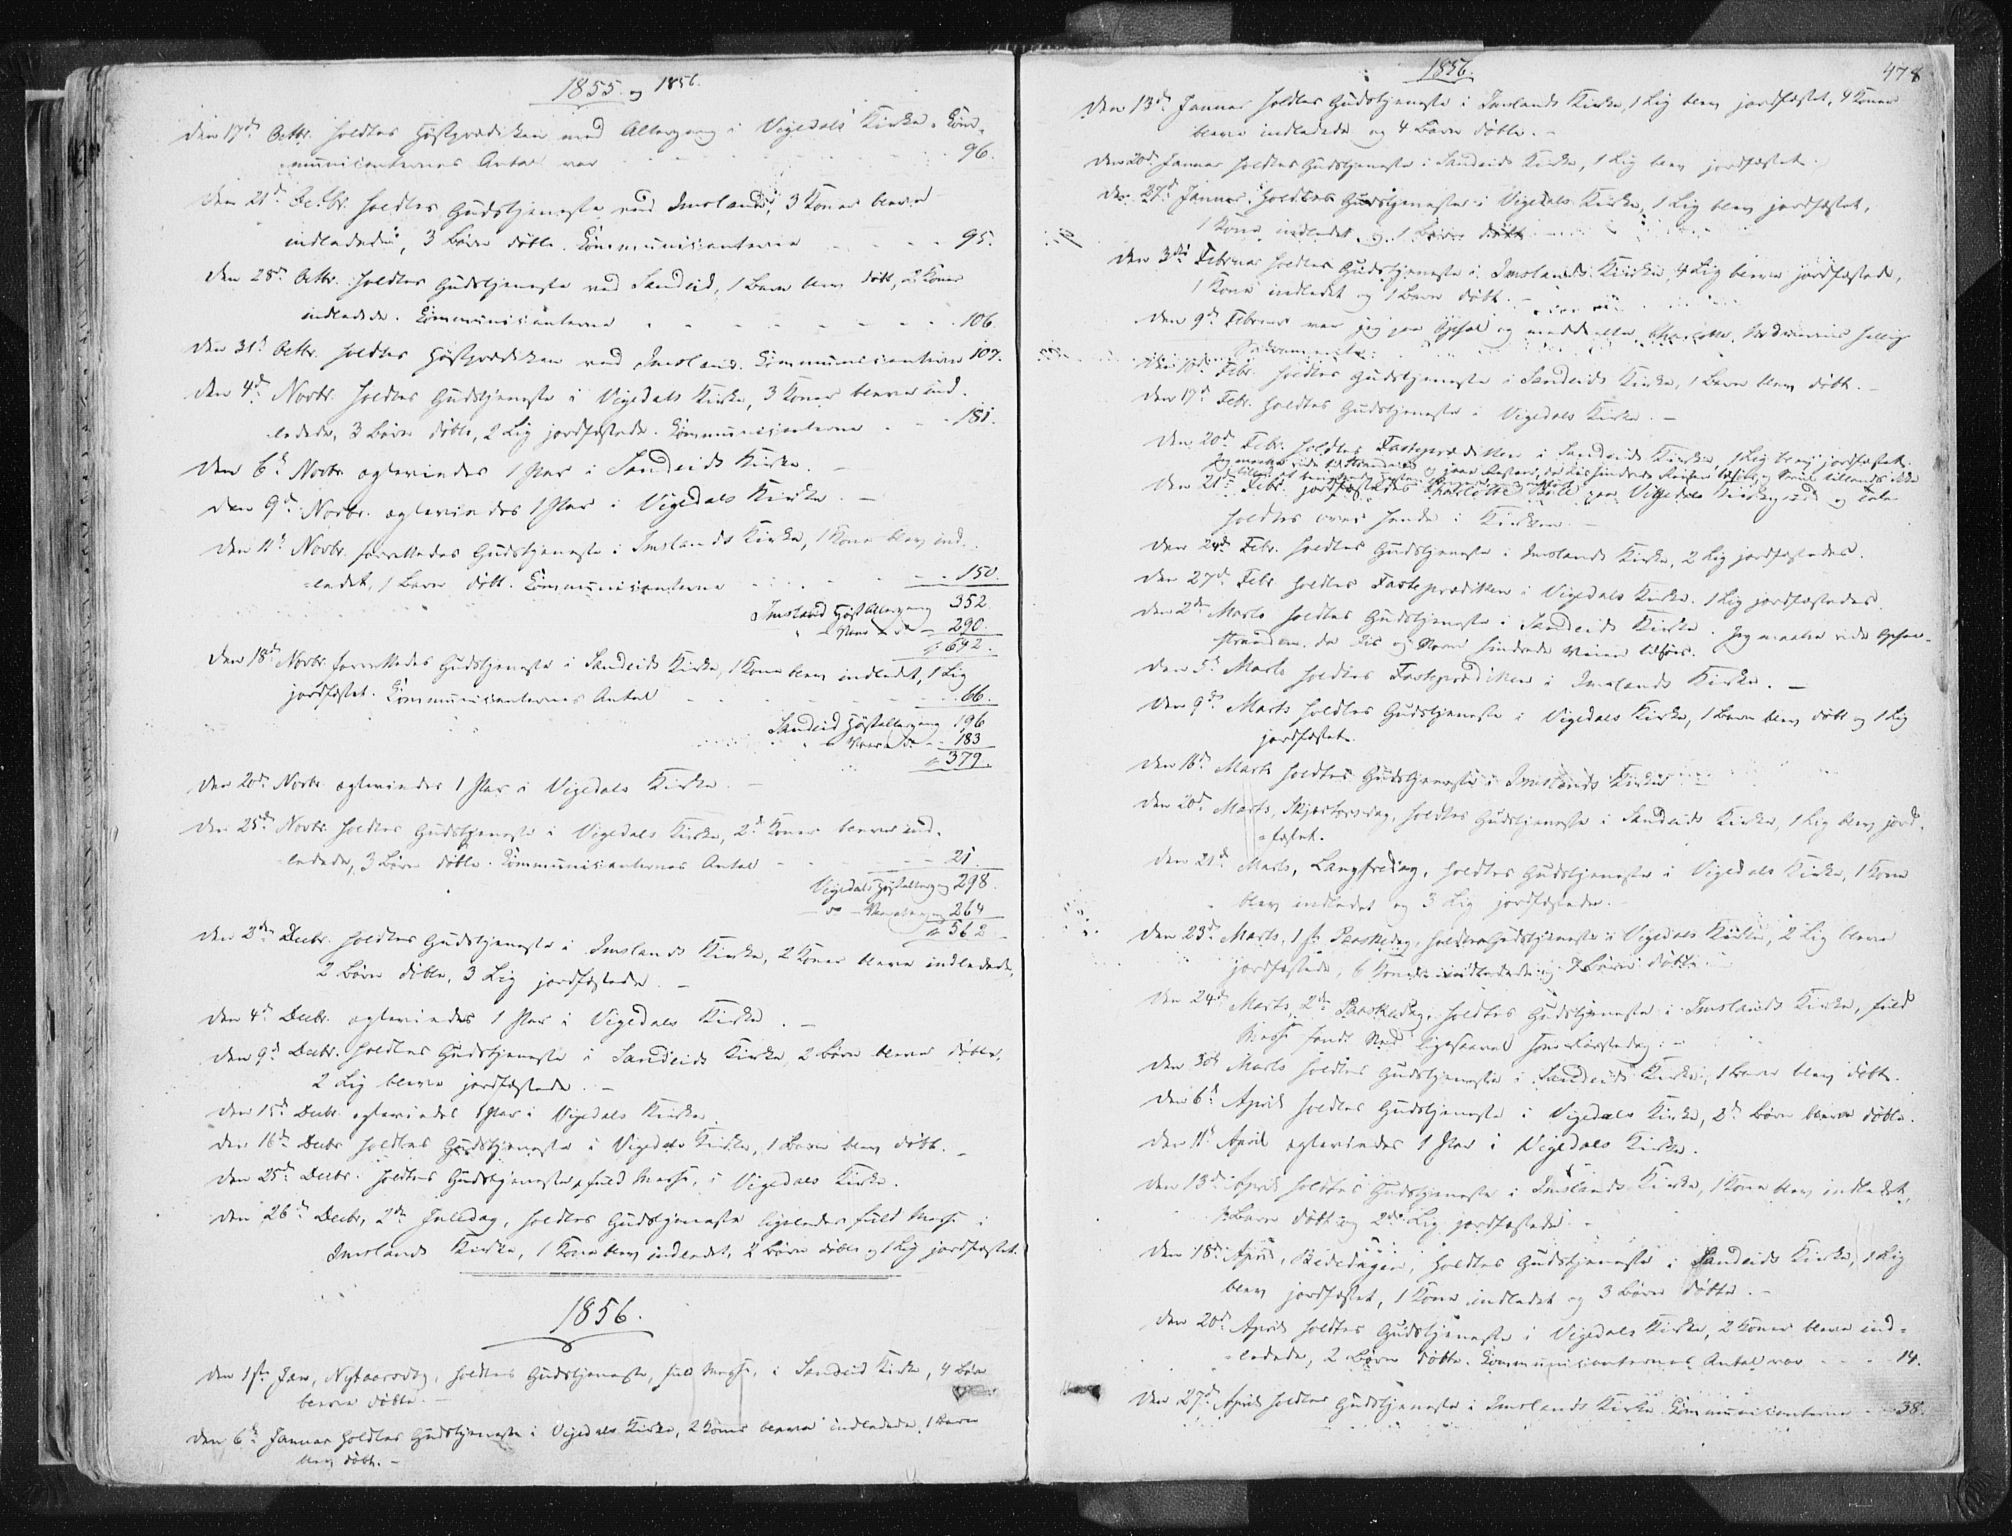 1855 og 1856.
Den 17de Octbr. holdtes Høstprædiken med Altergang i Vigedals Kirke. Com-
municanternes Antal var 96.
Den 21de Octbr. holdtes Gudstjeneste ved Imsland, 3 Koner bleve
indledede, 3 Børn døbte. Communicanterne 95.
Den 28de Octbr. holdtes Gudstjeneste ved Sandeid, 1 Barn blev døbt, 2 Koner
indledede. Communicanterne 106.
Den 31te Octbr. holdtes Høstprædiken ved Imsland. Communicanterne 107.
Den 4de Novbr. holdtes Gudstjeneste i Vigedals Kirke, 3 Koner bleve ind-
ledede, 3 Børn døbte, 2 Lig jordfæstede. Communicanterne 181.
Den 6te Novbr. egteviedes 1 Par i Sandeids Kirke. –
Den 9de Novbr. egteviedes 1 Par i Vigedals Kirke. –
Den 11te Novbr. forrettedes Gudstjeneste i Imslands Kirke, 1 Kone blev ind-
ledet, 1 Barn døbt. Communicanterne 150.
Imsland Høst Altergang 352.
" Vaar do 290.
642.
Den 18de Novbr. forrettedes Gudstjeneste i Sandeids Kirke, 1 Kone blev indledet, 1 Lig
jordfæstet. Communicanternes Antal 66.
Sandeid Høstaltergang 196
" Vaar do 183
379.
Den 20de Novbr. egteviedes 1 Par i Vigedals Kirke. –
Den 25de Novbr. holdtes Gudstjeneste i Vigedals Kirke, 2de Koner bleve ind-
ledede, 3 Børn døbte. Communicanternes Antal 21.
Vigedals Høstalterg. 298.
do Vaaralterg. 264
562
Den 2den Decbr. holdtes Gudstjeneste i Imslands Kirke, 2 Koner bleve indledede,
2 Børn døbte, 3 Lig jordfæstede. –
Den 4de Decbr. egteviedes 1 Par i Vigedals Kirke. –
Den 9de Decbr. holdtes Gudstjeneste i Sandeids Kirke, 2 Børn bleve døbte,
2 Lig bleve jordfæstede. –
Den 15de Decbr. egteviedes 1 Par i Vigedals Kirke.
Den 16de Decbr. holdtes Gudstjeneste i Vigedals Kirke, 1 Barn blev døbt. –
Den 25de Decbr. holdtes Gudstjeneste, fuld Messe, i Vigedals Kirke.
Den 26de Decbr, 2den Juledag, holdtes Gudstjeneste ligeledes fuld Messe i
Imslands Kirke, 1 Kone blev indledet, 2 Børn døbte og 1 Lig jordfæstet.
1856.
Den 1ste Jan, Nytaarsdag, holdtes Gudstjeneste, fuld Messe, i Sandeid Kirke, 4 Børn
bleve døbte. –
Den 6te Januar holdtes Gudstjeneste i Vigedals Kirke, 2 Koner bleve indledede, 1 Barn
blev døbt. –
1856.
478
Den 13de Januar holdtes Gudstjeneste i Imslands Kirke, 1 Lig blev jordfæstet, 4 Koner
bleve indledede og 4 Børn døbte. –
Den 20de Januar holdtes Gudstjeneste i Sandeids Kirke, 1 Lig blev jordfæstet.
Den 27de Januar holdtes Gudstjeneste i Vigedals Kirke, 1 Lig blev jordfæstet,
1 Kone indledet og 1 Barn døbt
Den 3die Februar holdtes Gudstjeneste i Imslands Kirke, 4 Lig bleve jordfæstede,
1 Kone indledet og 1 Barn døbt. –
Den 9de Februar var jeg paa Opsal og meddelte Charlotte hellig
Sakramente.
Den 10de Febr. holdtes Gudstjeneste i Sandeids Kirke, 1 Barn blev døbt. –
Den 17de Febr. holdtes Gudstjeneste i Vigedals Kirke. –
Den 20de Febr. holdtes Fasteprædiken i Sandeids Kirke, 1 Lig blev jordfæstet.
Den 21de Febr. jordfæstedes Charlotte paa Vigedals Kirkegaard og Tale
holdtes over hende i Kirken. –
Den 24de Febr. holdtes Gudstjeneste i Imslands Kirke, 2 Lig jordfæstedes.
Den 27de Febr. holdtes Fasteprædiken i Vigedals Kirke. 1 Lig jordfæstedes.
Den 2den Marts holdtes Gudstjeneste i Sandeids Kirke. Jeg maatte ride
stranden, da Iis og Storm hindrede Veien tilsøes.
Den 5te Marts holdtes Fasteprædiken i Imslands Kirke. –
Den 9de Marts holdtes Gudstjeneste i Vigedals Kirke, 1 Barn blev døbt og 1 Lig
jordfæstet.
Den 16de Marts holdtes Gudstjeneste i Imslands Kirke
Den 20de Marts, Skjærtorsdag, holdtes Gudstjeneste i Sandeids Kirke, 1 Lig blev jord-
fæstet.
Den 21de Marts, Langfredag, holdtes Gudstjeneste i Vigedals Kirke, 1 Kone
blev indledet og 3 Lig jordfæstede. –
Den 23de Marts, 1ste Paaskedag, holdtes Gudstjeneste i Vigedals Kirke, 2 Lig bleve
jordfæstede, 6 Koner indledede og 7 Børn døbte.
Den 24de Marts, 2den Paaskedag, holdtes Gudstjeneste i Imslands Kirke, fuld
Messe fandt Sted ligesaavel som 1ste Paaskedag. –
Den 30te Marts holdtes Gudstjeneste i Sandeids Kirke, 1 Barn blev døbt.
Den 6te April holdtes Gudstjeneste i Vigedals Kirke, 2de Børn bleve døbte.
Den 11te April egteviedes 1 Par i Vigedals Kirke.
Den 13de April holdtes Gudstjeneste i Imslands Kirke, 1 Kone blev indledet,
1 Barn døbt og 2de Lig jordfæstede. –
Den 18de April, Bededagen, holdtes Gudstjeneste i Sandeids Kirke, 1 Lig
blev jordfæstet, 1 Kone indledet og 3 Børn døbte. –
Den 20de April holdtes Gudstjeneste i Vigedals Kirke, 2 Koner bleve ind-
ledede, 2 Børn døbte. Communicanternes Antal var 14.
Den 27de April holdtes Gudstjeneste i Imslands Kirke. Communicanterne 38.